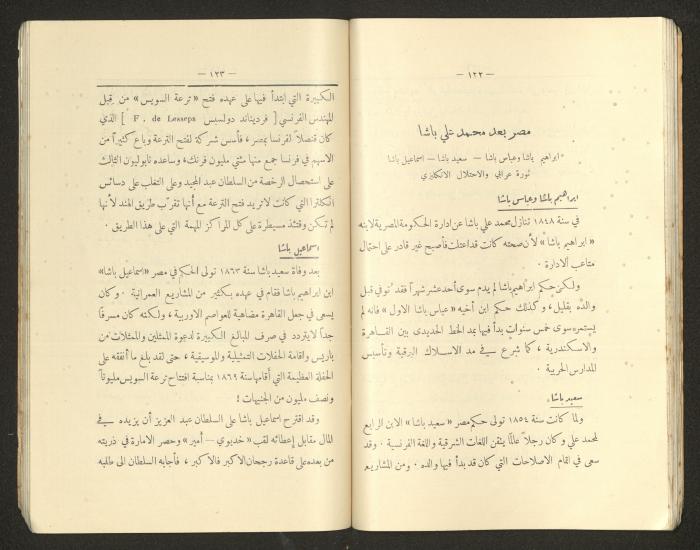 — ١٢٢ —
مصر بعد محمد علي باشا
« ابراهيم باشا وعباس باشا — سعيد باشا — اسماعيل باشا
ثورة عرابي والاحتلال الانكليزي
ابراهيم باشا وعباس باشا
في سنة ١٨٤٨ تنازل محمد علي باشا عن ادارة الحكومة المصرية لابنه
« ابراهيم باشا » لأن صحته كانت قد اعتلت فأصبح غير قادر على احتمال
متاعب الادارة .
ولكن حكم ابراهيم باشا لم يدم سوى أحد عشر شهراً فقد توفي قبل
والده بقليل ، وكذلك حكم ابن أخيه « عباس باشا الاول » فانه لم
يستمر سوى خمس سنوات بدأ فيها بمد الخط الحديدي بين القاهرة
والاسكندرية ، كما شرع في مد الاسلاك البرقية وتأسيس
المدارس الحربية .
سعيد باشا
ولما كانت سنة ١٨٥٤ تولى حكم مصر « سعيد باشا » الابن الرابع
لمحمد علي وكان رجلاً عالماً يتقن اللغات الشرقية واللغة الفرنسية . وقد
سعى في اتمام الاصلاحات التي كان قد بدأ فيها والده . ومن المشاريع
— ١٢٣ —
الكبيرة التي ابتدأ فيها على عهده فتح « ترعة السويس » من قبل
المهندس الفرنسي [ فرديناند دولسبس F . de Lesseps ] الذي
كان قنصلاً لفرنسا بمصر ، فأسس شركة لفتح الترعة وباع كثيراً من
الاسهم في فرنسا جمع منها مئتي مليون فرنك ، وساعده نابوليون الثالث
على استحصال الرخصة من السلطان عبد المجيد وعلى التغلب على دسائس
انكلترا التي كانت لا تريد فتح الترعة مع أنها تقرّب طريق الهند لأنها
لم تكن وقتئذ مسيطرة على كل المراكز المهمة التي على هذا الطريق .
اسماعيل باشا
بعد وفاة سعيد باشا سنة ١٨٦٣ تولى الحكم في مصر « اسماعيل باشا »
ابن ابراهيم باشا فقام في عهده بكثير من المشاريع العمرانية . وكان
يسعى في جعل القاهرة مضاهية للعواصم الاوربية ، ولكنه كان مسرفاً
جداً لا يتردد في صرف المبالغ الكبيرة لدعوة الممثلين والممثلات من
باريس واقامة الحفلات التمثيلية والموسيقية ، حتى لقد بلغ ما أنفقه على
الحفلة العظيمة التي أقامها سنة ١٨٦٩ بمناسبة افتتاح ترعة السويس مليوناً
ونصف مليون من الجنيهات !
وقد اقترح اسماعيل باشا على السلطان عبد العزيز أن يزيده في
المال مقابل إعطائه لقب « خديوي — أمير » وحصر الامارة في ذريته
من بعده على قاعدة رجحان الاكبر فالاكبر ، فأجابه السلطان الى طلبه